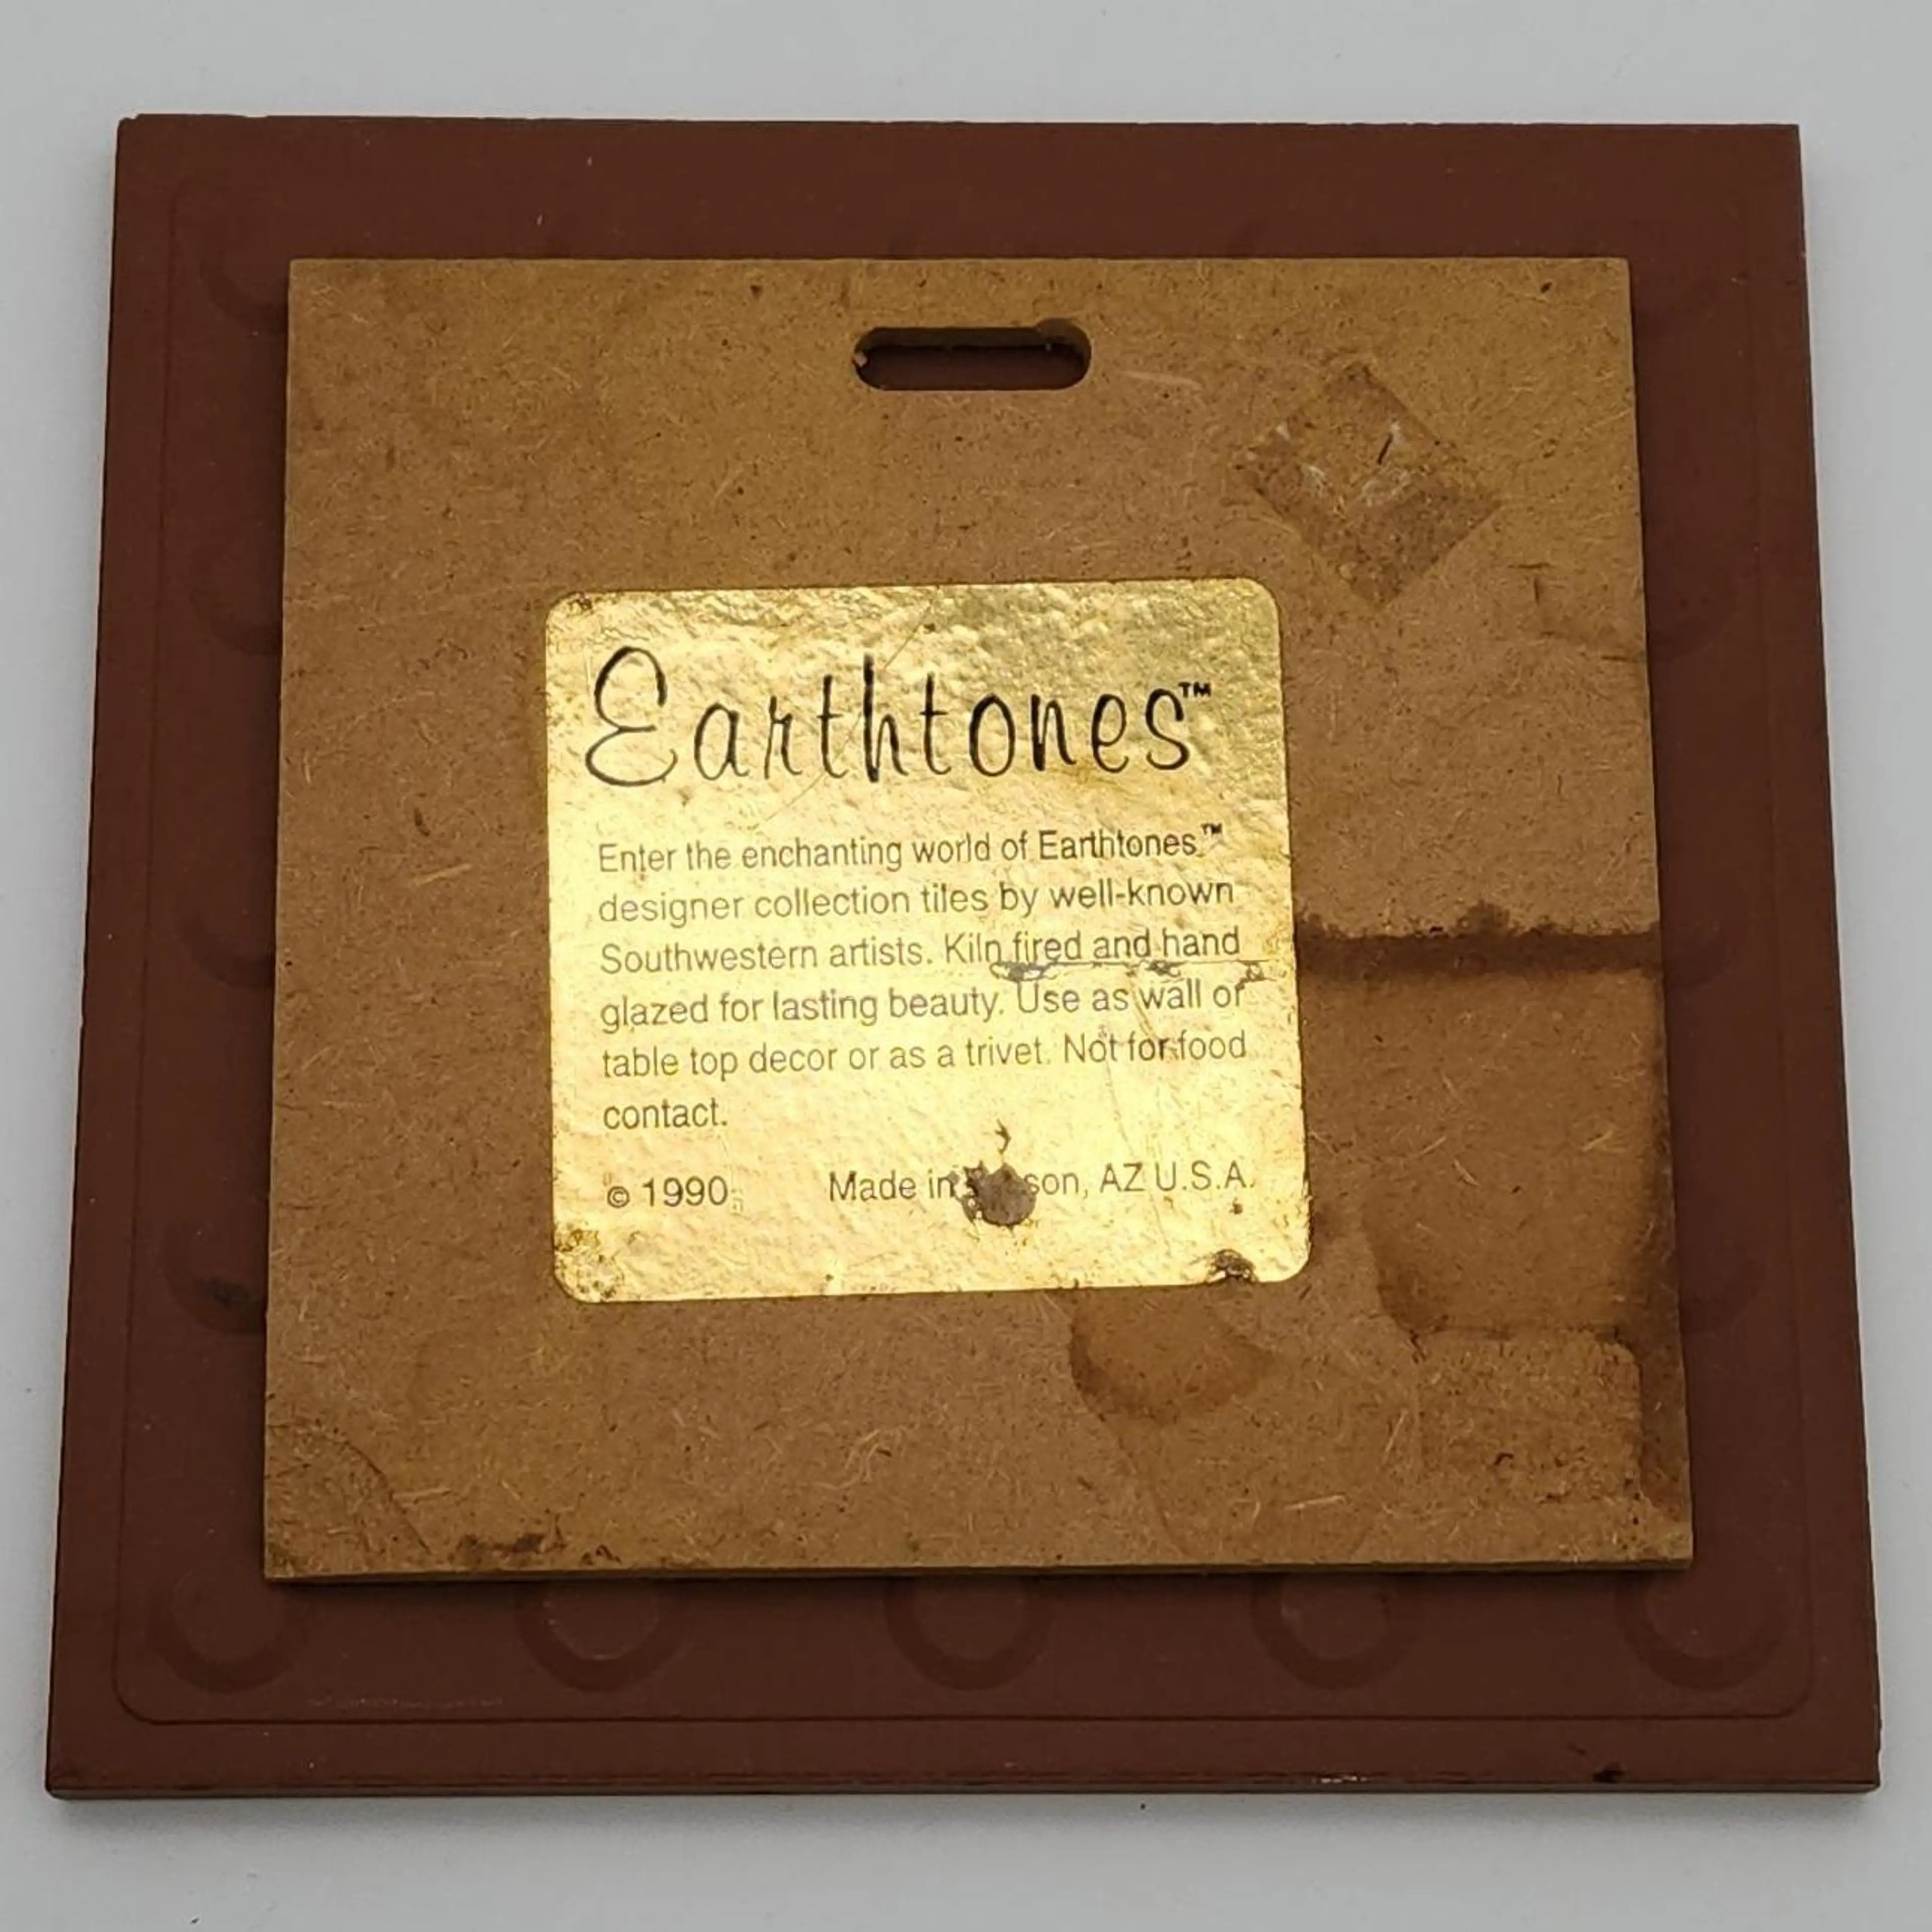 Earthtones™
Enter the enchanting world of Earthtones™
designer collection tiles by well-known
Southwestern artists. Kiln fired and hand
glazed for lasting beauty. Use as wall or
table top decor or as a trivet. Not for food
contact.
© 1990 Made in son, AZ U.S.A.